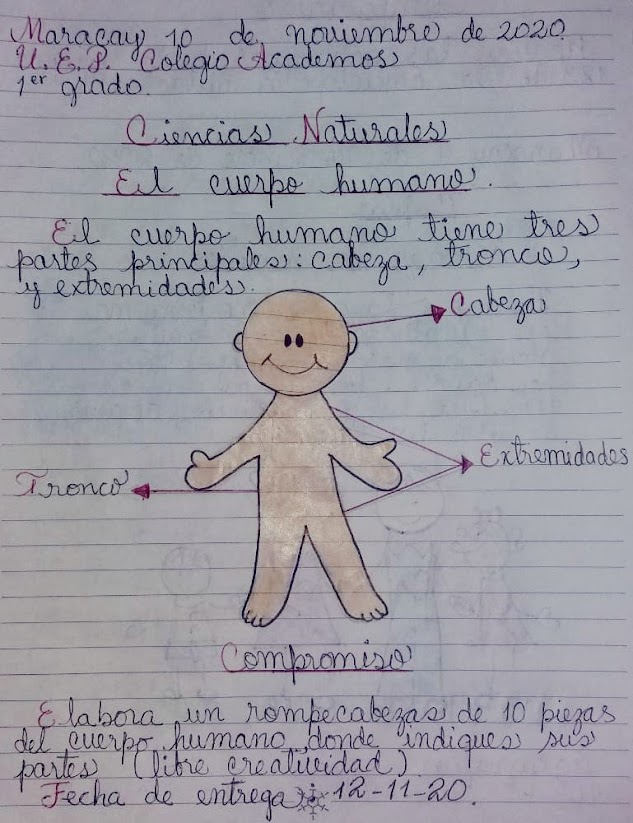 Maracay 10 de noviembre de 2020
U.E.P. Colegio Academos
1er grado.
Ciencias Naturales
El cuerpo humano.
El cuerpo humano tiene tres
partes principales: cabeza, tronco,
y extremidades.
Cabeza
Extremidades
Tronco
Compromiso
Elabora un rompecabezas de 10 piezas
del cuerpo humano donde indiques sus
partes (libre creatividad)
Fecha de entrega: 12-11-20.